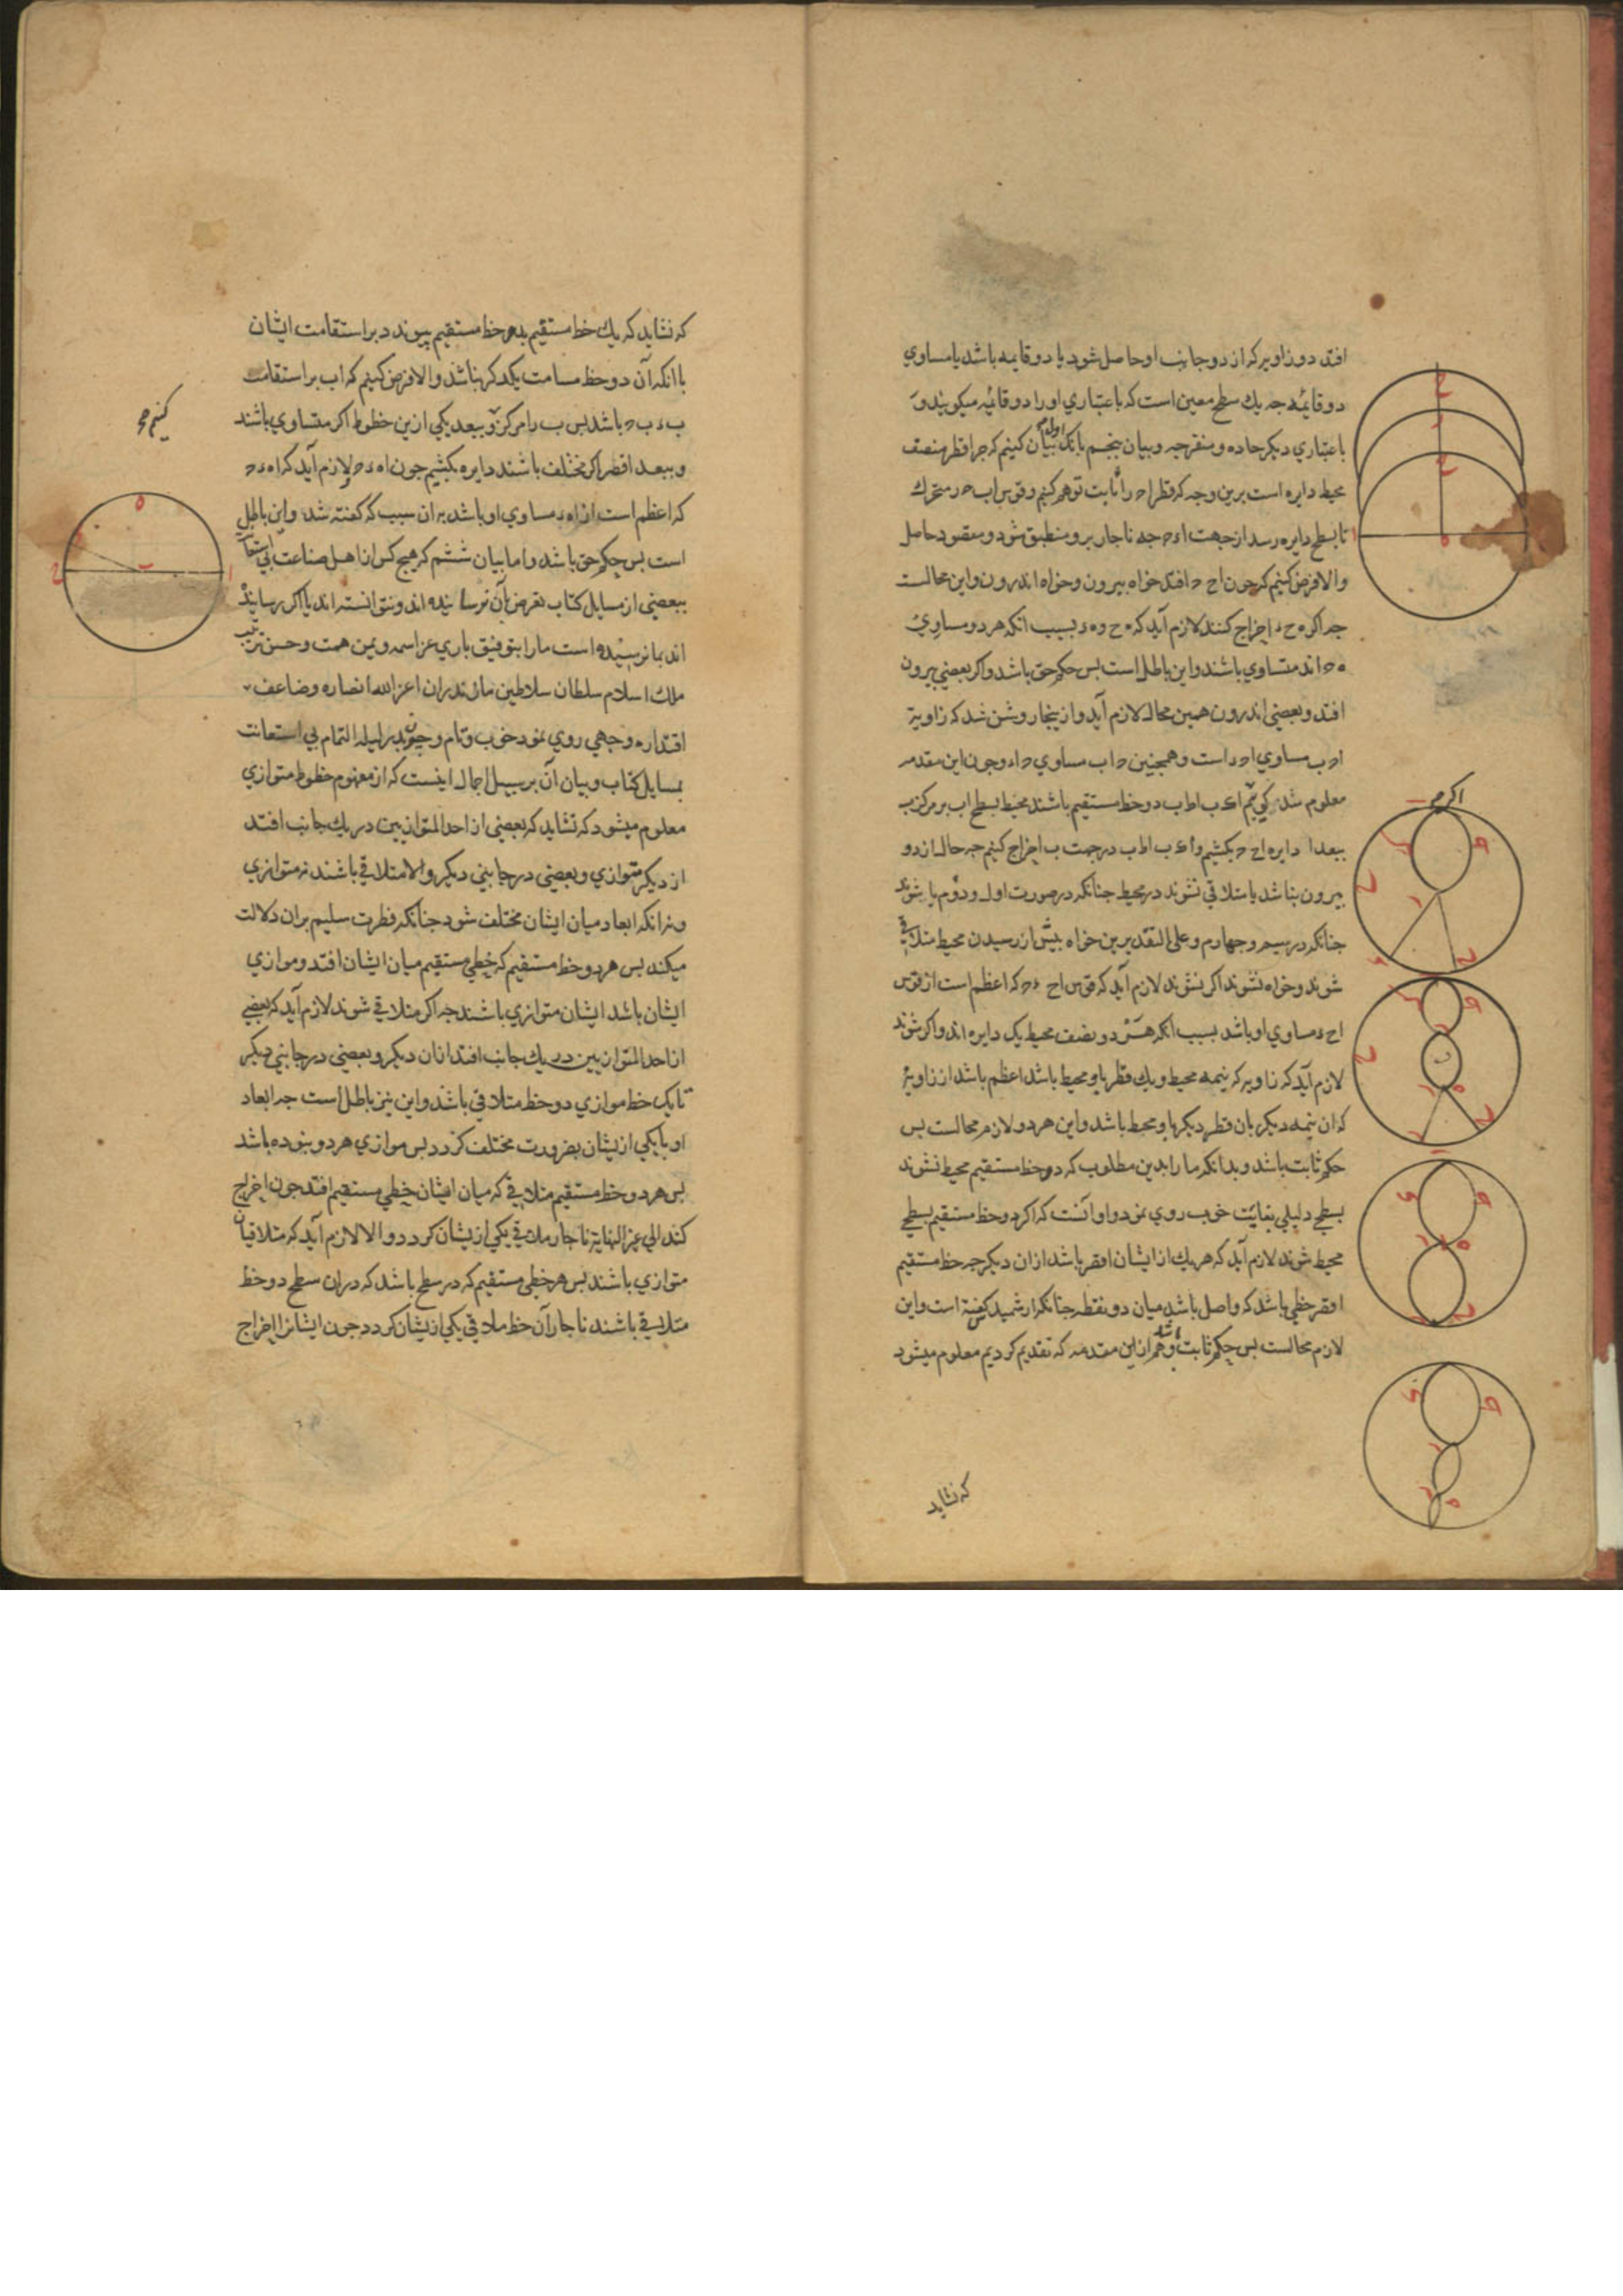 افتد دو زاویه که از دو جانب او حاصل شود یا دو قایمه باشد یا مساوی
دو قائمه جه یك سطح معین است که باعتباری او را دو قائمه میکویند و
باعتباری دیکر حاده و منفرجه و بیان بنجم بانك اول بیان کنیم که جرا قطر منصف
محیط دایره است برین وجه که قطر اه را ثابت توهم کنیم و قوس اب ه را متحرك
تا بسطح دایره رسد از جهت اء ه جه ناجار برو منطبق شود و مقصود حاصل
والا فرض کنیم که جون اح ه افتد خواه بیرون و خواه اندرون و این محالست
جه اکر ه ح ء اخراج کنند لازم آید که ه ح و ه ء بسبب انکه هر دو مساوی
ه ه اند متساوی باشند و این باطل است بس حکم حق باشد و اکر بعضی بیرون
افتد و بعضی اندرون همین محال لازم آید و از ینجا روشن شد که زاویة
اه ب مساوی اه ء است و همجنین ه اب مساوی ه اء و جون این مقدمه
معلوم شد کوییم اء ب اط ب دو خط مستقیم باشند محیط بسطح اب بر مرکز ب
ببعد ا دایره اح ه بکشیم و اء ب اط ب در جهت ب اخراج کنیم جه حال از دو
بیرون نباشد یا متلاقی نشوند در محیط جنانکه در صورت اول و دوم یا شوند
جنانکه در سیم و جهارم و علی التقدیرین خواه بیش از رسیدن محیط متلاقی
شوند و خواه نشوند اکر نشوند لازم آید که قوس اح ء ه که اعظم است از قوس
اح ء مساوی او باشد بسبب انکه هر دو نصف محیط یك دایره اند و اکر شوند
لازم آید که زاویه که نیمه محیط و یك قطر باو محیط باشد اعظم باشد از زاویۀ
که ان نیمه دیکر بان قطر دیکر باو محیط باشد و این هر دو لازم محالست بس
حکم ثابت باشد و بدانکه ما را بدین مطلوب که دو خط مستقیم محیط نشوند
بسطح دلیلی بغایت خوب روی نمود و او آنست که اکر دو خط مستقیم بسطحی
محیط شوند لازم آید که هر یك از ایشان اقصر باشد از ان دیکر جه خط مستقیم
اقصر خطی باشد که واصل باشد میان دو نقطه جنانکه ارشمیدس کفته است و این
لازم محالست بس حکم ثابت باشد و هم از این مقدمه که تقدیم کردیم معلوم میشود
که نشاید
که نشاید که یك خط مستقیم بدو خط مستقیم بیوندد بر استقامت ایشان
با انکه آن دو خط مسامت یکدکر نباشد والا فرض کنیم که اب بر استقامت
ب ء ب ه باشد بس ب را مرکز و ببعد یکی ازین خطوط اکر متساوی باشند
و ببعد اقصر اکر مختلف باشند دایره بکشیم جون اه ء ه و لازم آید که اه ء ه
که اعظم است از اه ء مساوی او باشد بدان سبب که کفته شد و این باطل
است بس حکم حق باشد و اما بیان ششم که هیج کس از اهل صناعت بی استعانت
ببعضی از مسایل کتاب تعرض بآن نرسانیده اند و نتوانسته اند یا اکر رسانیده
اند بما نرسیده است ما را بتوفیق باری عز اسمه و یمن همت و حسن تربیت
ملك اسلام سلطان سلاطین مازندران اعز الله انصاره و ضاعف
اقتداره وجهی روی نمود خوب و تام و جون بدر لیله التمام بی استعانت
بمسایل کتاب و بیان آن بر سبیل اجمال اینست که از مفهوم خطوط متوازی
معلوم میشود که نشاید که بعضی از احد المتوازیین در یك جانب افتد
از دیکر متوازی و بعضی در جانبی دیکر والا متلاقی باشند نه متوازی
و نه انکه ابعاد میان ایشان مختلف شود جنانکه فطرت سلیم بران دلالت
میکند بس هر دو خط مستقیم که خطی مستقیم میان ایشان افتد و موازی
ایشان باشد ایشان متوازی باشند جه اکر متلاقی شوند لازم آید که بعضی
از احد المتوازیین در یك جانب افتد از ان دیکر و بعضی در جانبی دیکر
تا یك خط موازی دو خط متلاقی باشد و این نیز باطل است جه ابعاد
او با یکی از یشان بضرورت مختلف کردد بس موازی هر دو نبوده باشد
بس هر دو خط مستقیم متلاقی که میان ایشان خطی مستقیم افتد جون اخراج
کنند الی غیر النهایة ناجار ملاقی یکی از یشان کردد والا لازم آید که متلاقیان
متوازی باشند بس هر خطی مستقیم که در سطح باشد که دران سطح دو خط
متلاقی باشند ناجار آن خط ملاقی یکی از یشان کردد جون ایشانرا اخراج